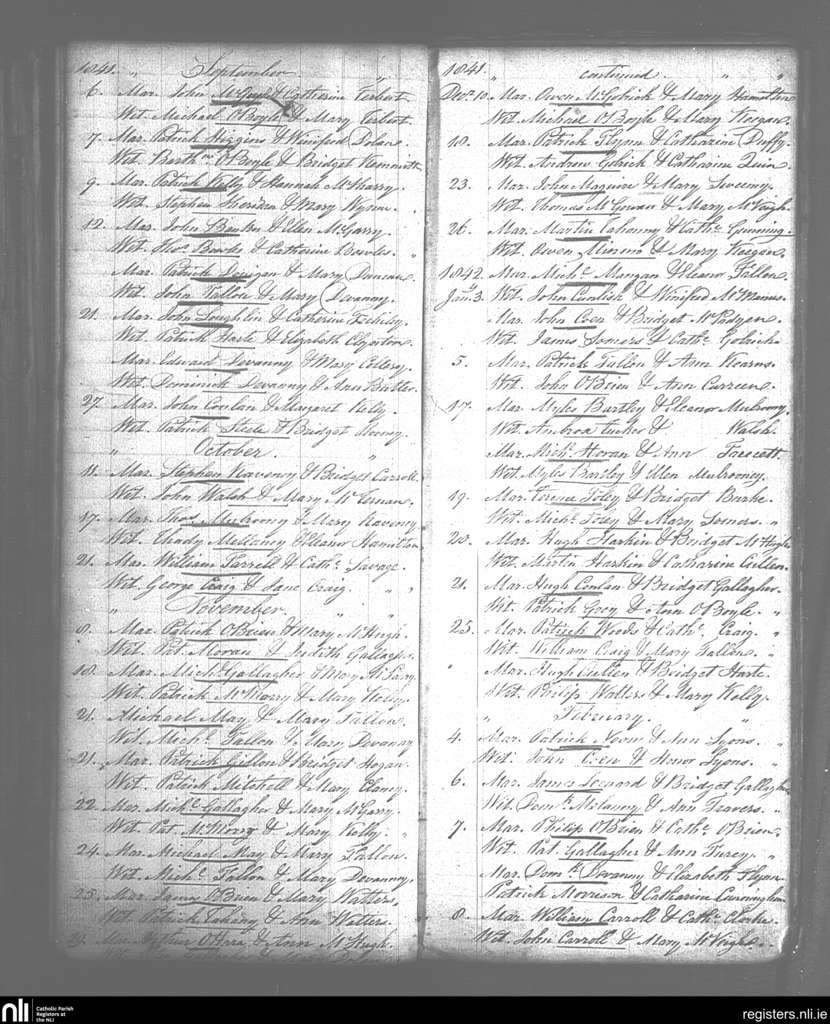 1841. " September. "
6. Mar. John & Catherine
Wit. Michael O'Boyle & Mary
7. Mar. Patrick Higgins & Winifred Dolan.
Wit. Barthw O'Boyle & Bridget
9. Mar. Patrick Kelly & Hannah McSharry.
Wit. Stephen Sheridan & Mary Wynne.
12. Mar. John & Ellen McGarry.
Wit. Thos & Catherine
Mar. Patrick & Mary Duncan.
Wit. John Fallon & Mary Devanny.
21. Mar. John Loughlin & Catherine
Wit. Patrick Harte & Elizabeth
Mar. Edward Devanny & Mary
Wit. Dominick Devanny & Ann
27. Mar. John Conlan & Margaret Kelly.
Wit. Patrick Steele & Bridget
" October. "
11. Mar. Stephen Kaveney & Bridget Carroll.
Wit. John Walsh & Mary
17. Mar. Thos Mulroony & Mary Kaveney
Wit. Thady & Eleanor Hamilton
21. Mar. William Farrell & Cathe Savage.
Wit. George Craig & Jane Craig. "
" November. "
8. Mar. Patrick O'Brien & Mary McHugh.
Wit. Pat. Moran & Judith Gallagher
18. Mar. Michl Gallagher & Mary
Wit. Patrick & Mary Kelly.
21. Michael May & Mary Fallon.
Wit. Michl Fallon & Mary Devanny
21. Mar. Patrick Gillon & Bridget Hogan.
Wit. Patrick Mitchell & Mary Clancy.
22. Mar. Michl Gallagher & Mary McGarry.
Wit. Pat & Mary Kelly.
24. Mar. Michael May & Mary Fallon.
Wit. Michl Fallon & Mary Devanny.
25. Mar. James O'Brien & Mary Watters.
Wit. Patrick & Ann Watters.
Mar. Arthur O'Hara & Ann McHugh.
1841. " continued. " "
Decr 10. Mar. Owen McGolrick & Mary Hamilton
Wit. Michael O'Boyle & Mary Keegan.
18. Mar. Patrick Flynn & Catharine Duffy.
Wit. Andrew Golrick & Catharine Quin.
23. Mar. John Maguire & Mary Sweeney.
Wit. Thomas McGowan & Mary McVeigh.
26. Mar. Martin & Cathe Gunning.
Wit. Owen & Mary Keegan.
1842. Mar. Michl Mangan & Eleanor Fallon.
Jany 3. Wit. John Cunlish & Winifred McManus.
Mar. John Coen & Bridget
Wit. James Somers & Cathe Golrick
5. Mar. Patrick Fallon & Ann Kearns.
Wit. John O'Brien & Ann Curreen.
17. Mar. Myles Bartley & Eleanor Mulroony.
Wit. Ambrose & Walsh.
Mar. Michl Horan & Ann Fawcett
Wit. Myles Bartley & Ellen Mulrooney.
19. Mar. Terence Foley & Bridget Burke.
Wit. Michl Foley & Mary Somers. "
20. Mar. Hugh Harkin & Bridget McHugh
Wit. Martin Harkin & Catharine Cullen.
21. Mar. Hugh Conlan & Bridget Gallagher.
Wit. Patrick & Ann O'Boyle. "
25. Mar. Patrick Woods & Cathe Craig. "
Wit. William Craig & Mary Fallon. "
" Mar. Hugh Cullen & Bridget Harte.
Wit. Philip Watters & Mary Kelly.
" February. "
4. Mar. Patrick & Ann Lyons. "
Wit. John Coen & Honor Lyons. "
6. Mar. James & Bridget Gallagher
Wit. Domk & Ann Travers. "
7. Mar. Philip O'Brien & Cathe O'Brien.
Wit. Pat. Gallagher & Ann Furey. "
Mar. Domk Devanny & Elizabeth Flynn
Patrick Morrison & Catharine Cunningham
8. Mar. William Carroll & Cathe Clarke.
Wit. John Carroll & Mary McVeigh.
nli Catholic Parish Registers at the NLI
registers.nli.ie